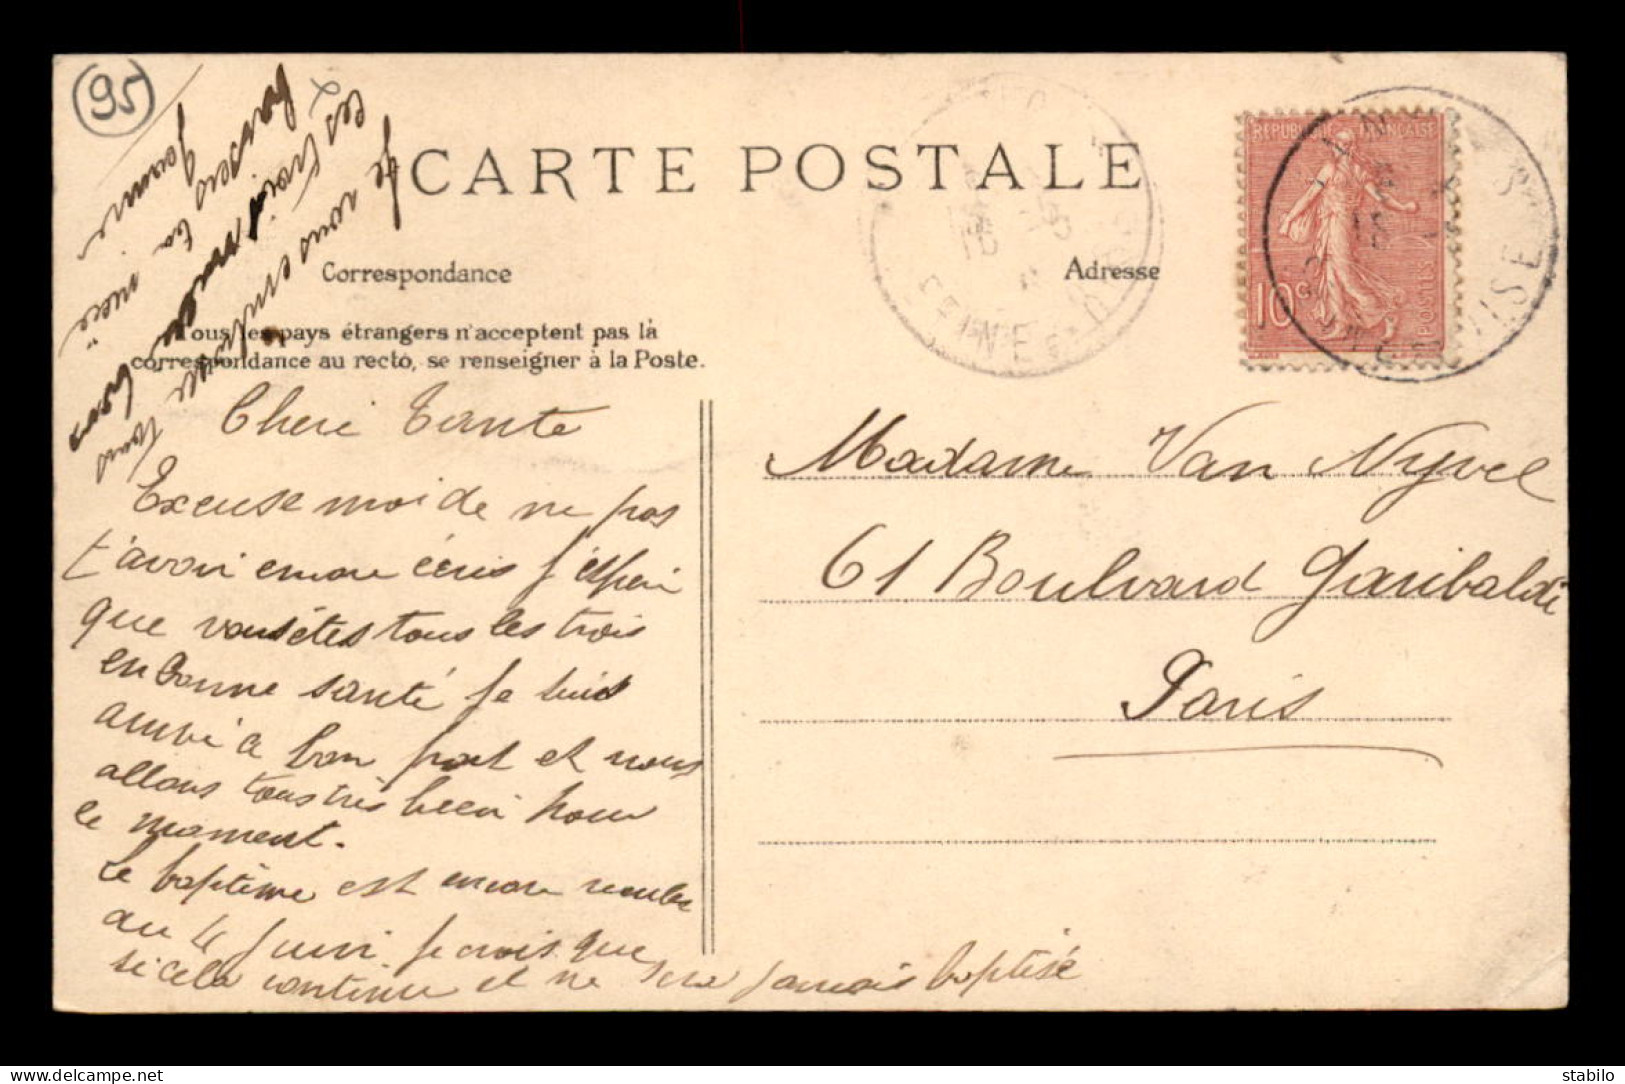 95
CARTE POSTALE
Correspondance
Adresse
Tous les pays étrangers n'acceptent pas la
correspondance au recto, se renseigner à la Poste.
RÉPUBLIQUE FRANÇAISE
10c
POSTES
SEINE-ET-OISE
Cheri Tante
Excuse moi de ne pas
t'avoir encore écris j'éspère
que vous êtes tous les trois
en bonne santé je suis
arrivé a bon port et nous
allons tous très bien pour
le moment.
Le baptême est encore reculer
au 4 juin je crois que
si cela continue il ne sera jamais baptisé
Je vous embrasse tous
les trois
ta nièce
Madame Van Nyvel
61 Boulvard Garibaldi
Paris
delcampe.net
stabilo